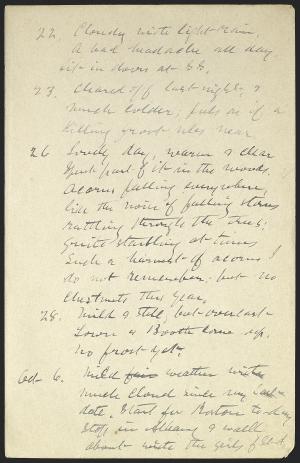 22. Cloudy with light rain.
A bad headache all day.
sit in doors at S.S.
23. Cleared off last night, &
much colder; feels as if a
killing frost was near
26 Lovely day, warm & clear
Spent part of it in the woods.
Acorns falling everywhere,
like the noise of falling stones
rattling through the trees;
quite startling at times
Such a harvest of acorns I
do not remember. but no
chestnuts this year.
28. Mild & still, but overcast
Lown & Booth come up.
No frost yet.
Oct 6. Mild fair weather with
much cloud since my last
date. Start for Boston to-day
Stop in Albany & walk
about with the girls of